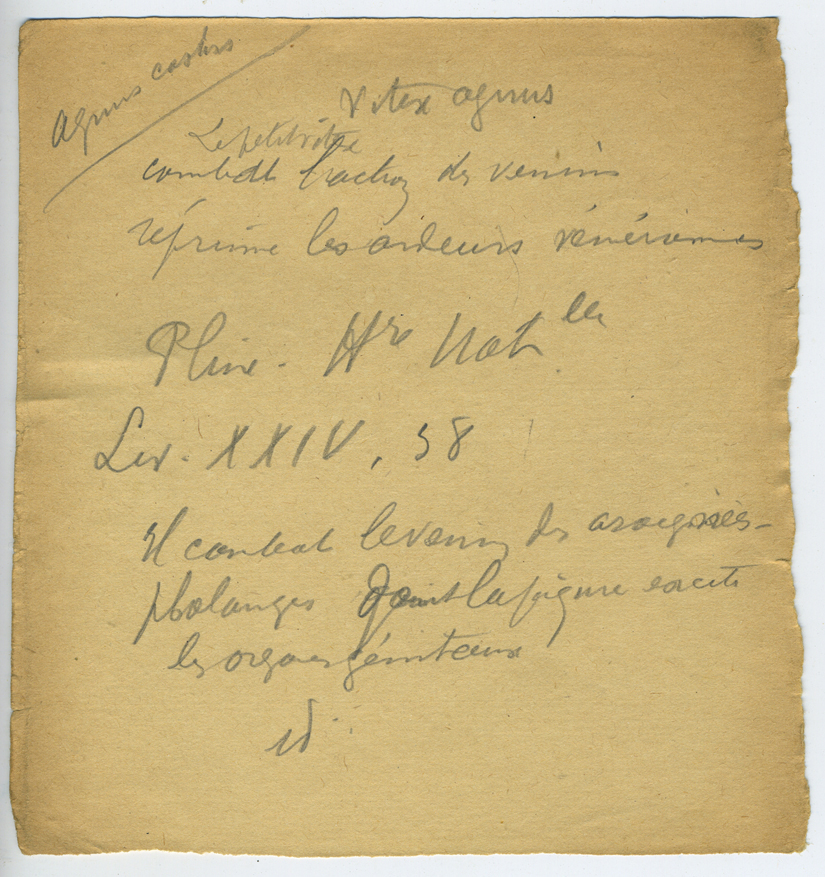 Agnus castus
Vitex agnus
Le petit vitex
combat l'action des venins
réprime les ardeurs vénériennes
Pline. Hre Natlle
Liv. XXIV, 38
Il combat le venin des araignées-
phalanges dont la piqure excite
les organes génitaux
id.